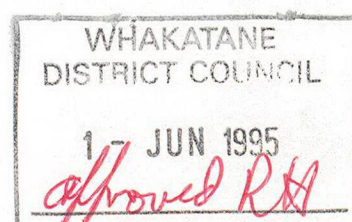 WHAKATANE
DISTRICT COUNCIL
1 - JUN 1995
approved RH